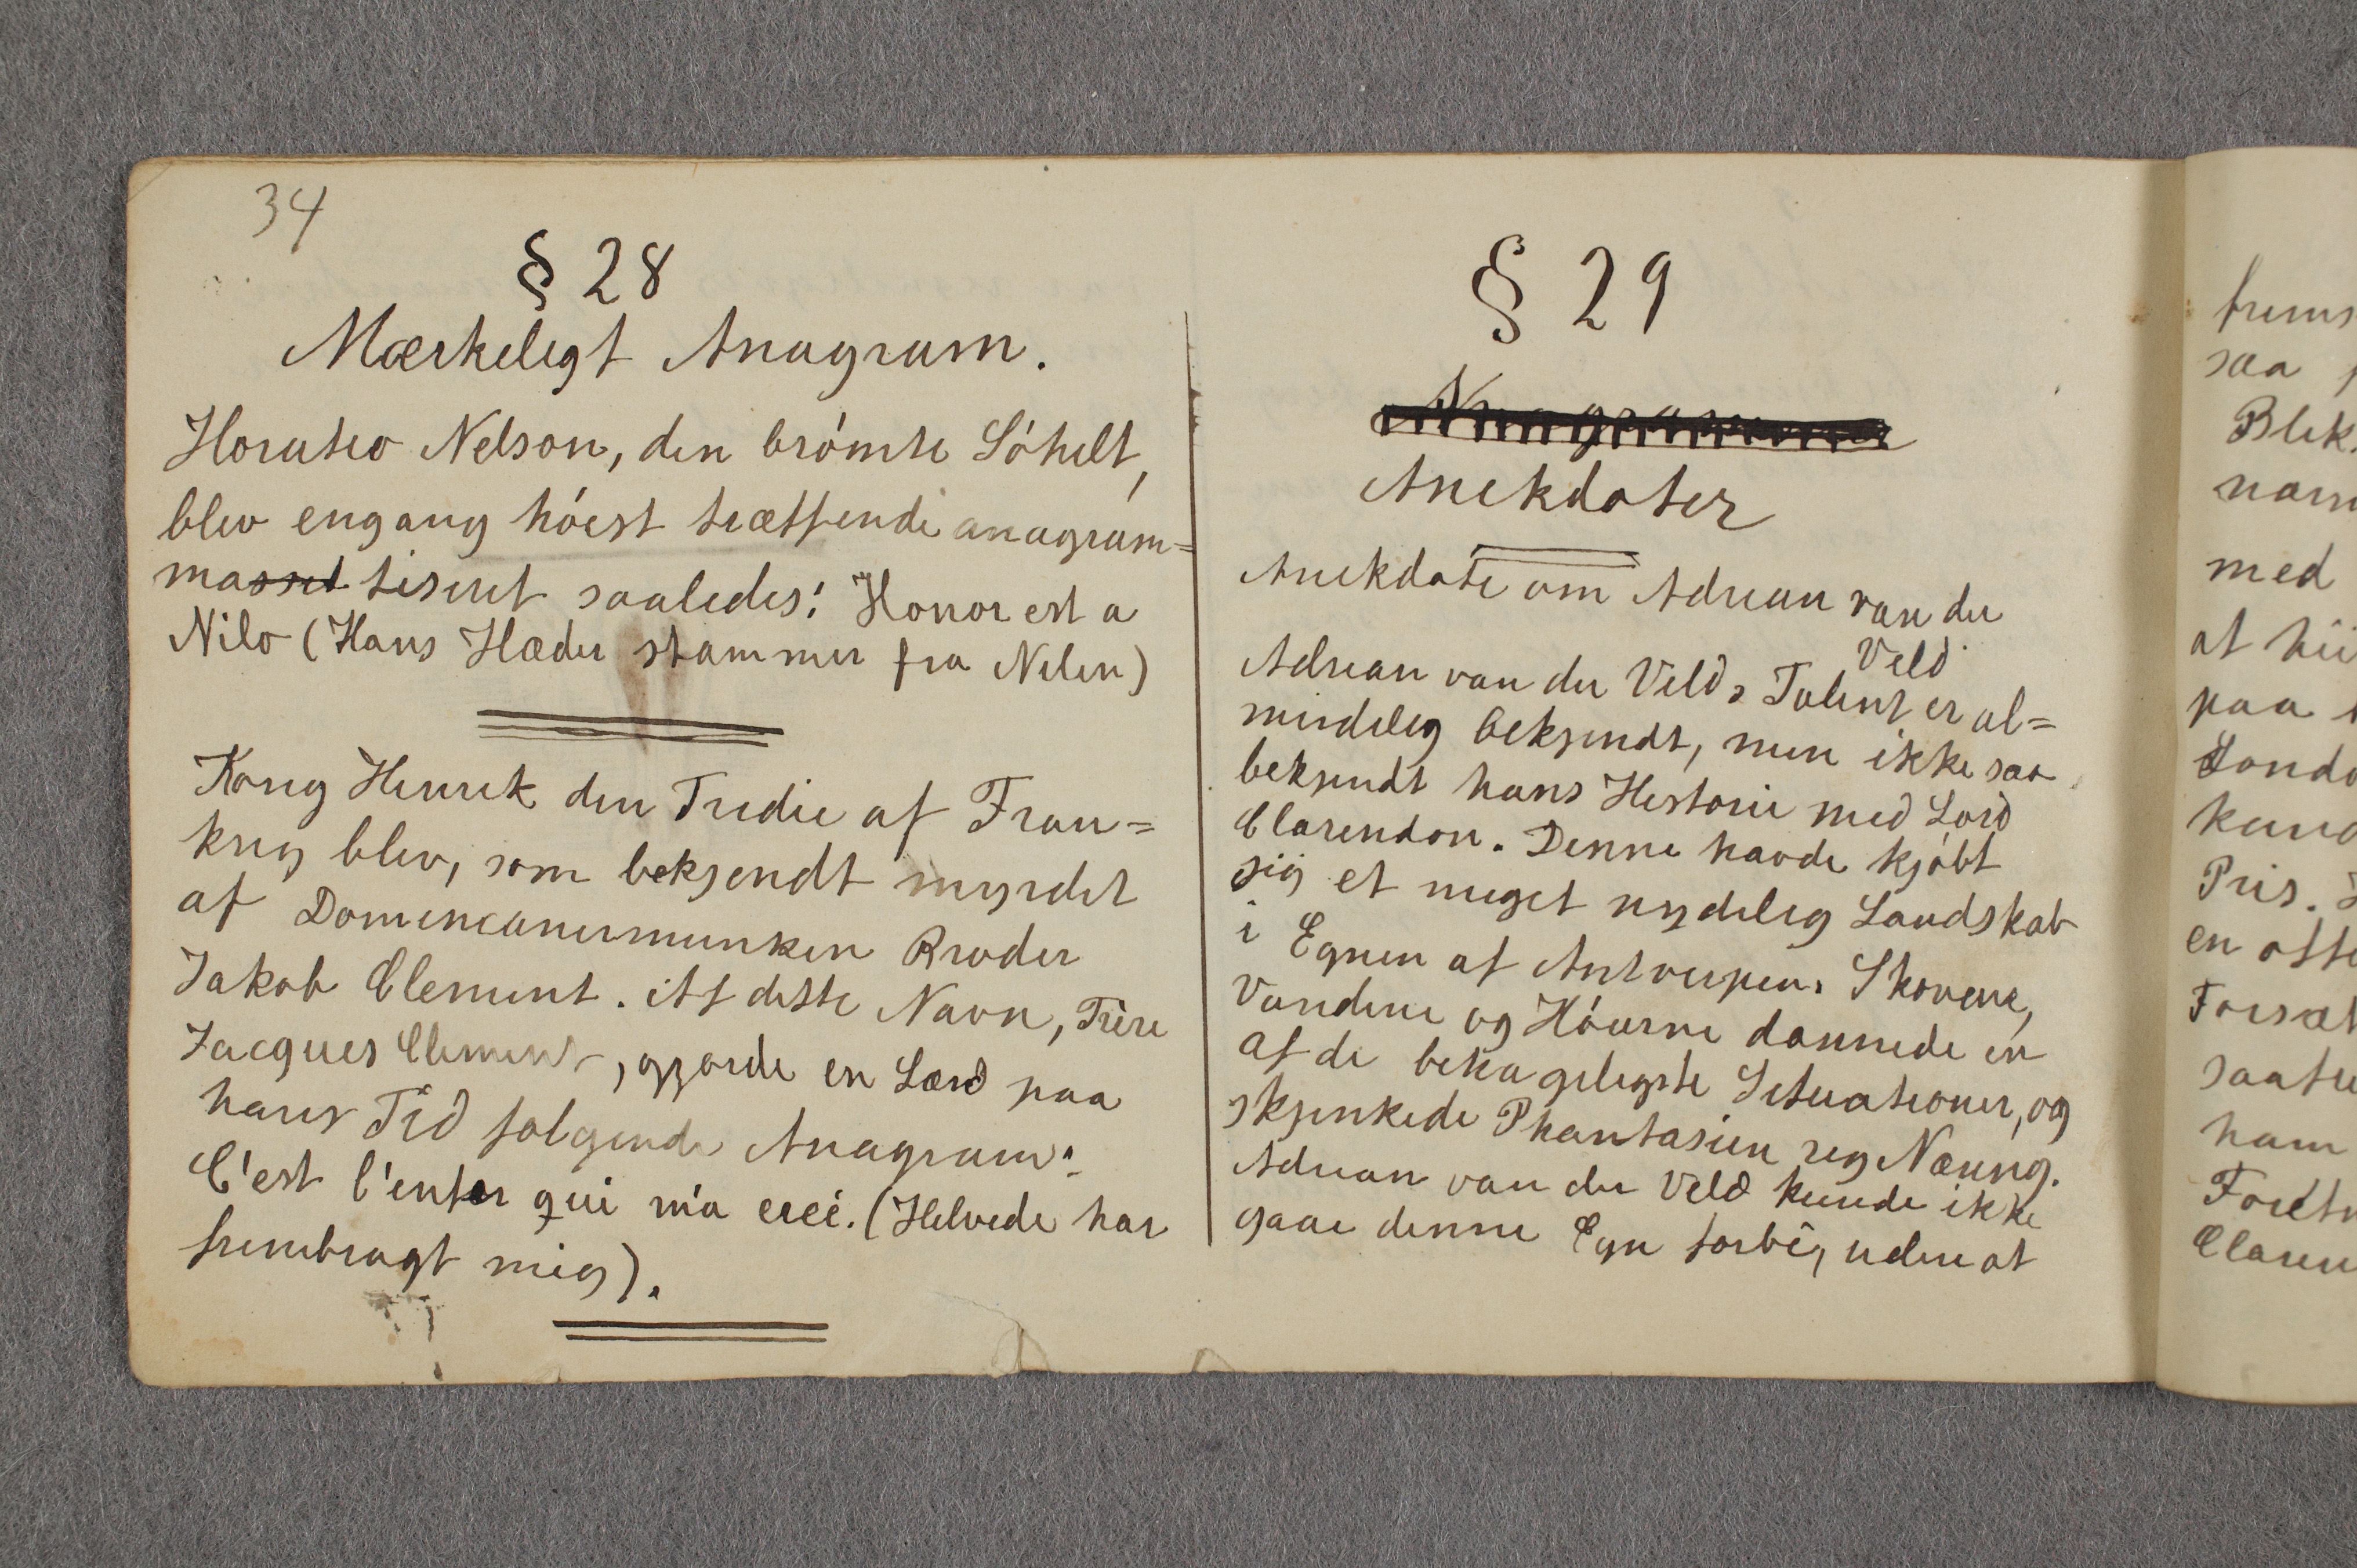 34
§ 28
Mærkeligt Anagram.
Horatio Nelson, den brómte Sóhelt,
blev engang hóist træffende anagram=
masset tiseret saaledes: Honor est a
Nilo (Hans Hæder stammer fra Nilen)
Kong Henrik den Tredie af Fran=
krig blev, som bekjendt myrdet
af Dominicanermunken Broder
Jakob Clement. Af dette Navn, Frère
Jacques Clement, gjorde en Lærd paa
hans Tid følgende Anagram:
C'est l'enfer qui m'a créé. (Helvede har
frembragt mig).
§ 29
Anagrammer
Anekdoter
Anekdote om Adrian van der
Veld
Adrian van der Velds Talent er al=
mindelig bekjendt, men ikke saa
bekjendt hans Historie med Lord
Clarendon. Denne havde kjóbt
sig et meget nydelig Landskab
i Egnen af Antverpen. Skovene,
Vandene og Hóiderne dannede en
af de behageligste Situationer, og
skjenkede Phantasien rig Næring.
Adrian van der Veld kunde ikke
gaae denne Egn forbi, uden at
saa
Blik
med
at
paa
Pris.
en ofte
ham